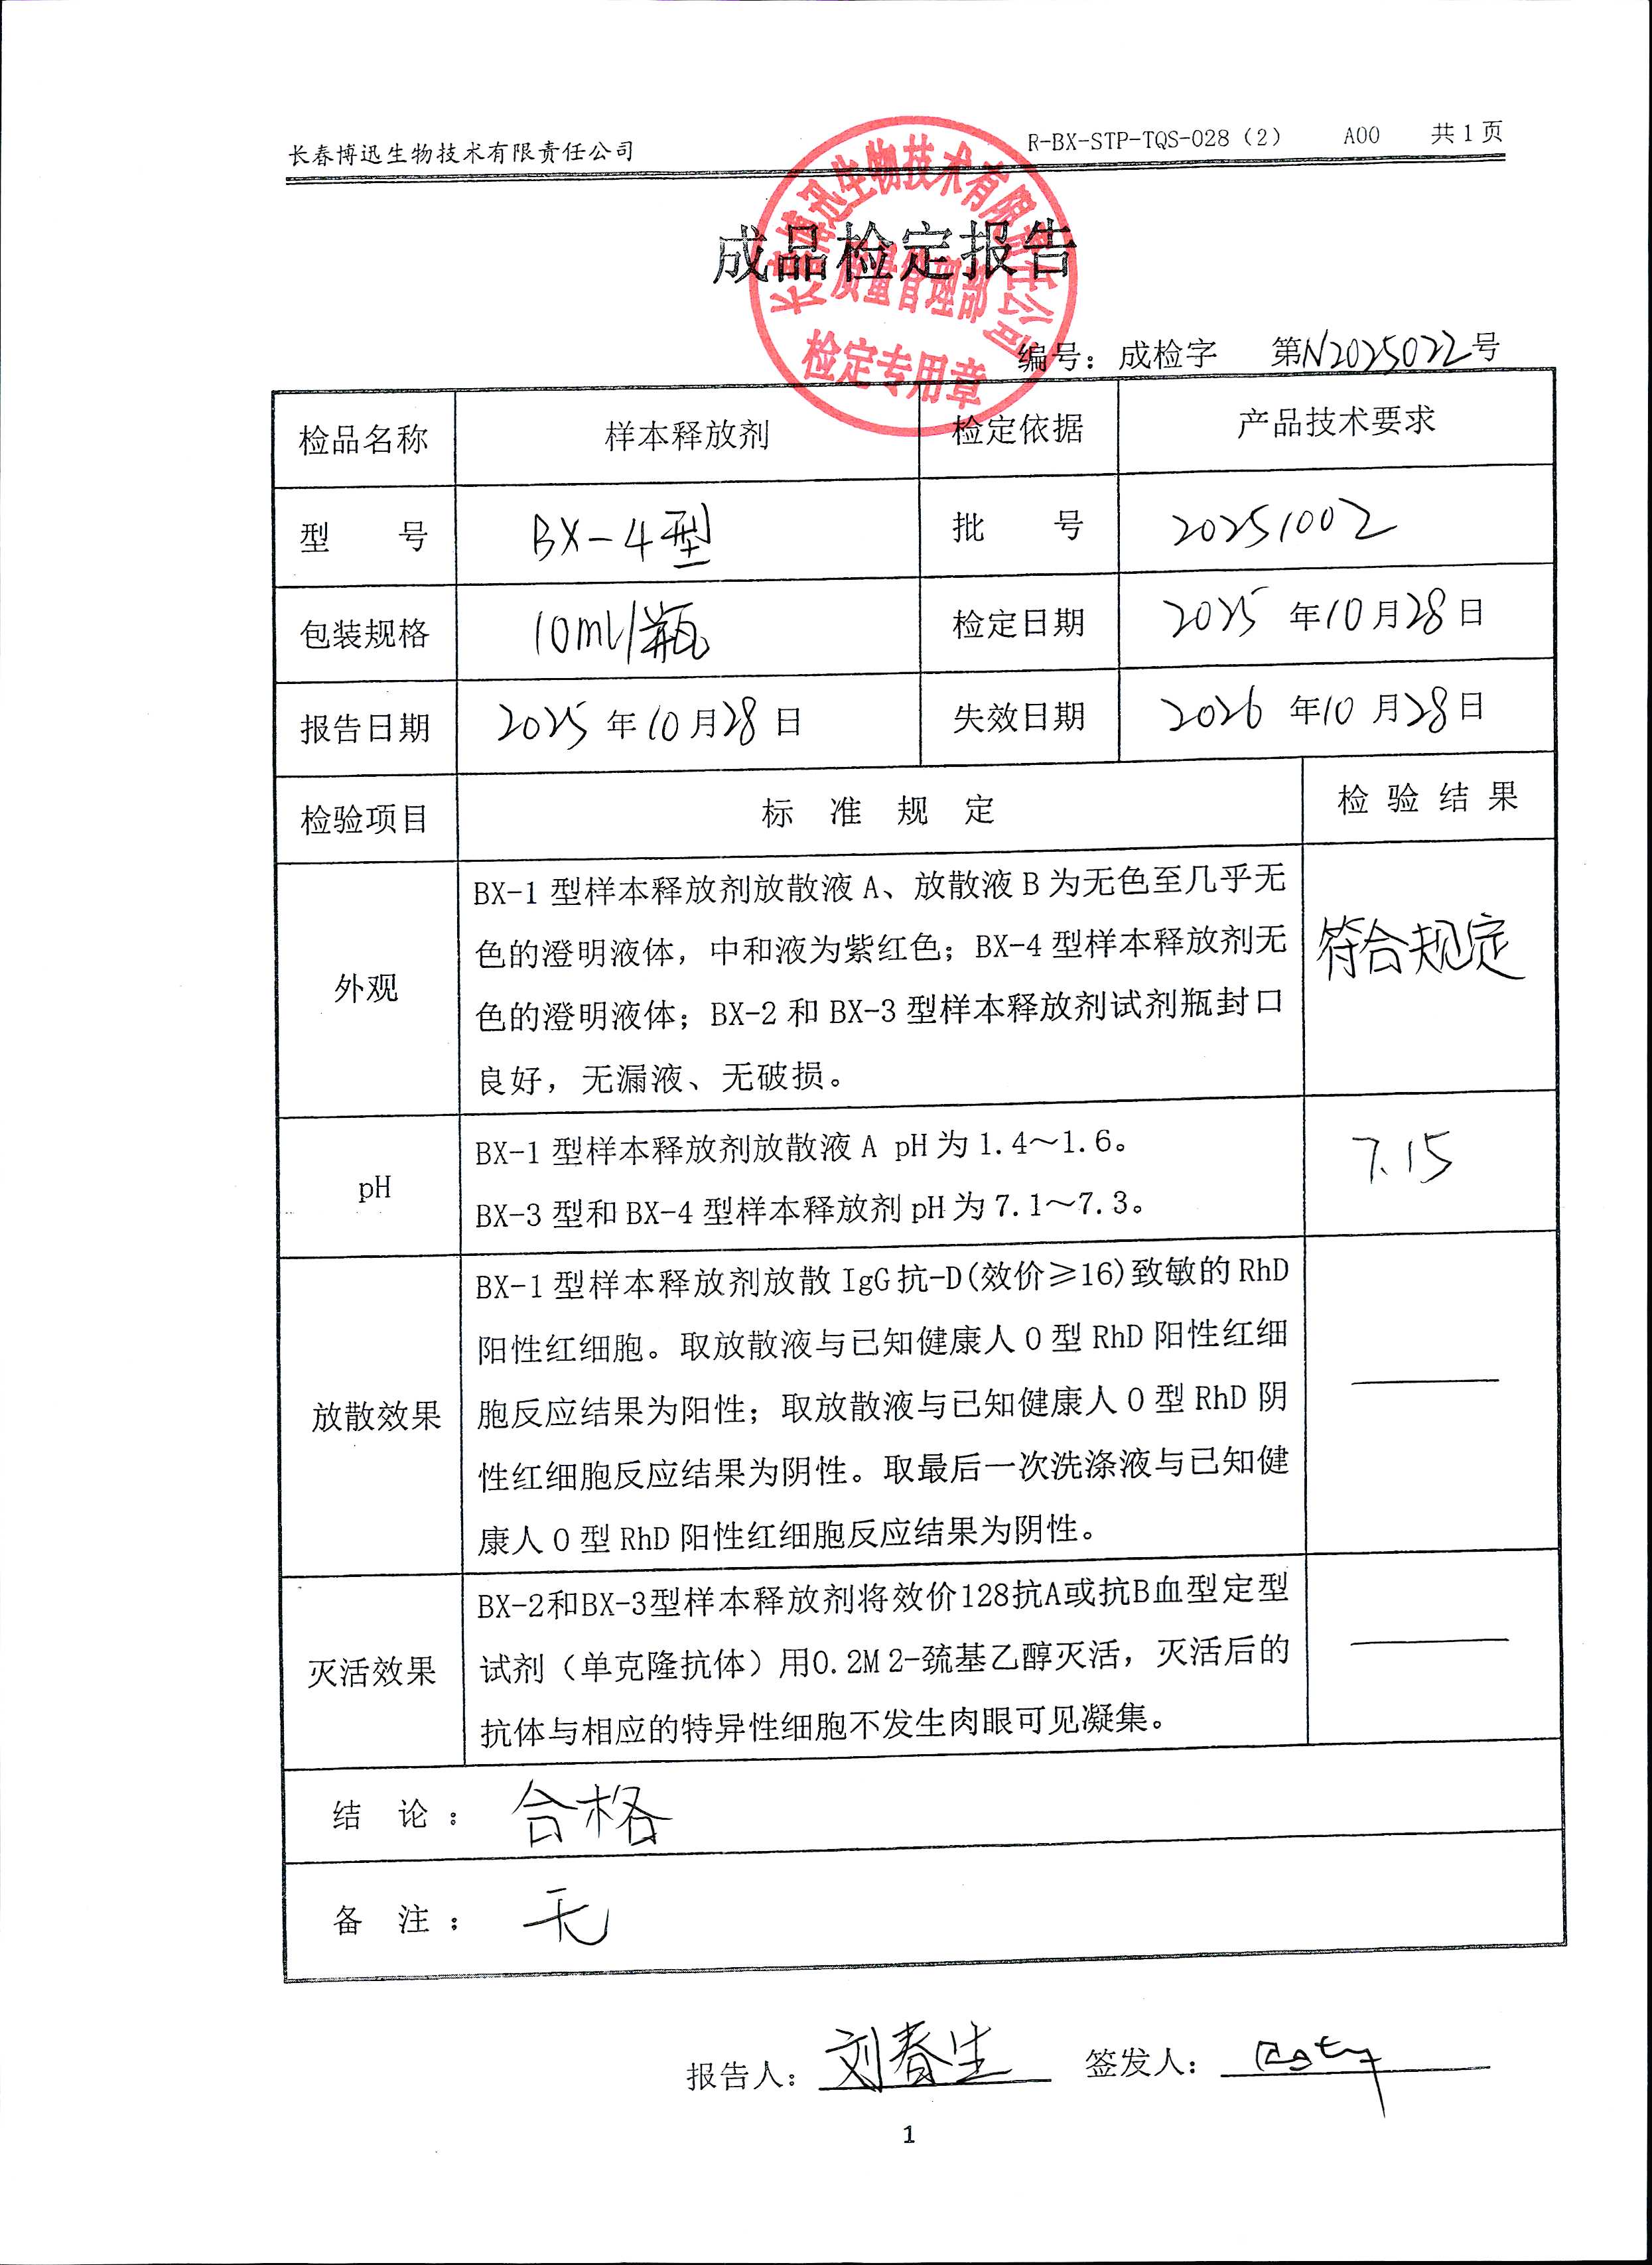 长春博迅生物技术有限责任公司 R-BX-STP-TQS-028（2） A00 共1页
成品检定报告
长春博迅生物技术有限责任公司
质量管理部
检定专用章
编号：成检字 第N2025022号
检品名称 样本释放剂 检定依据 产品技术要求
型 号 BX-4型 批 号 20251002
包装规格 10ml/瓶 检定日期 2025年10月28日
报告日期 2025年10月28日 失效日期 2026年10月28日
检验项目 标 准 规 定 检 验 结 果
外观
BX-1型样本释放剂放散液A、放散液B为无色至几乎无
色的澄明液体，中和液为紫红色；BX-4型样本释放剂无
色的澄明液体；BX-2和BX-3型样本释放剂试剂瓶封口
良好，无漏液、无破损。
符合规定
pH
BX-1型样本释放剂放散液A pH为1.4～1.6。
BX-3型和BX-4型样本释放剂pH为7.1～7.3。
7.15
放散效果
BX-1型样本释放剂放散IgG抗-D(效价≥16)致敏的RhD
阳性红细胞。取放散液与已知健康人O型RhD阳性红细
胞反应结果为阳性；取放散液与已知健康人O型RhD阴
性红细胞反应结果为阴性。取最后一次洗涤液与已知健
康人O型RhD阳性红细胞反应结果为阴性。
灭活效果
BX-2和BX-3型样本释放剂将效价128抗A或抗B血型定型
试剂（单克隆抗体）用0.2M 2-巯基乙醇灭活，灭活后的
抗体与相应的特异性细胞不发生肉眼可见凝集。
结 论： 合格
备 注： 无
报告人：刘春生 签发人：
1